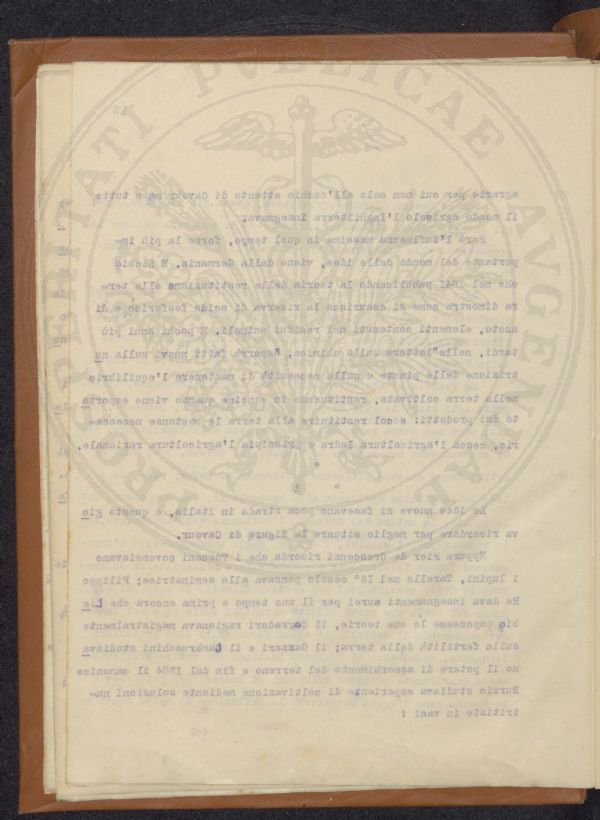 PROSPERITATI PVBLICAE AVGENDAE
agrarie per cui non solo all'occhio attento di Cavour ma a tutto
il mondo agricolo l'Inghilterra insegnava.
Però l'influenza massima in quel tempo, forse la più im-
portante del mondo delle idee, viene dalla Germania. E Liebig
che nel 1841 pubblicando la teoria della restituzione alla ter-
ra dimostra come si esaurisca la riserva di acido fosforico e di
azoto, elementi contenuti nei residui animali. E pochi anni più
tardi, nelle "lettere sulla chimica, "esporrà fatti nuovi sulla nu
trizione delle piante e sulla necessità di mantenere l'equilibrio
nella terra coltivata, restituendo in concime quanto viene esporta
to dai prodotti: e col restituire alla terra le sostanze necessa-
rie, cessa l'agricoltura ladra e principia l'agricoltura razionale.
°
° °
Le idee nuove si facevano poca strada in Italia, e questo gio
va ricordare per meglio situare la figura di Cavour.
Eppure Pier de Crescenzi ricorda che i Toscani sovesciavano
i lupini, Tarello nel 16° secolo pensava alla seminatrice; Filippo
Re dava insegnamenti aurei per il suo tempo e prima ancora che Lie
big esponesse le sue teorie, il Corradori ragionava magistralmente
sulla fertilità della terra; il Gazzeri e il Lambruschini studiava
no il potere di assorbimento del terreno e fin dal 1784 il canonico
Burzio studiava esperienze di coltivazione mediante soluzioni nu-
tritizie in vasi :